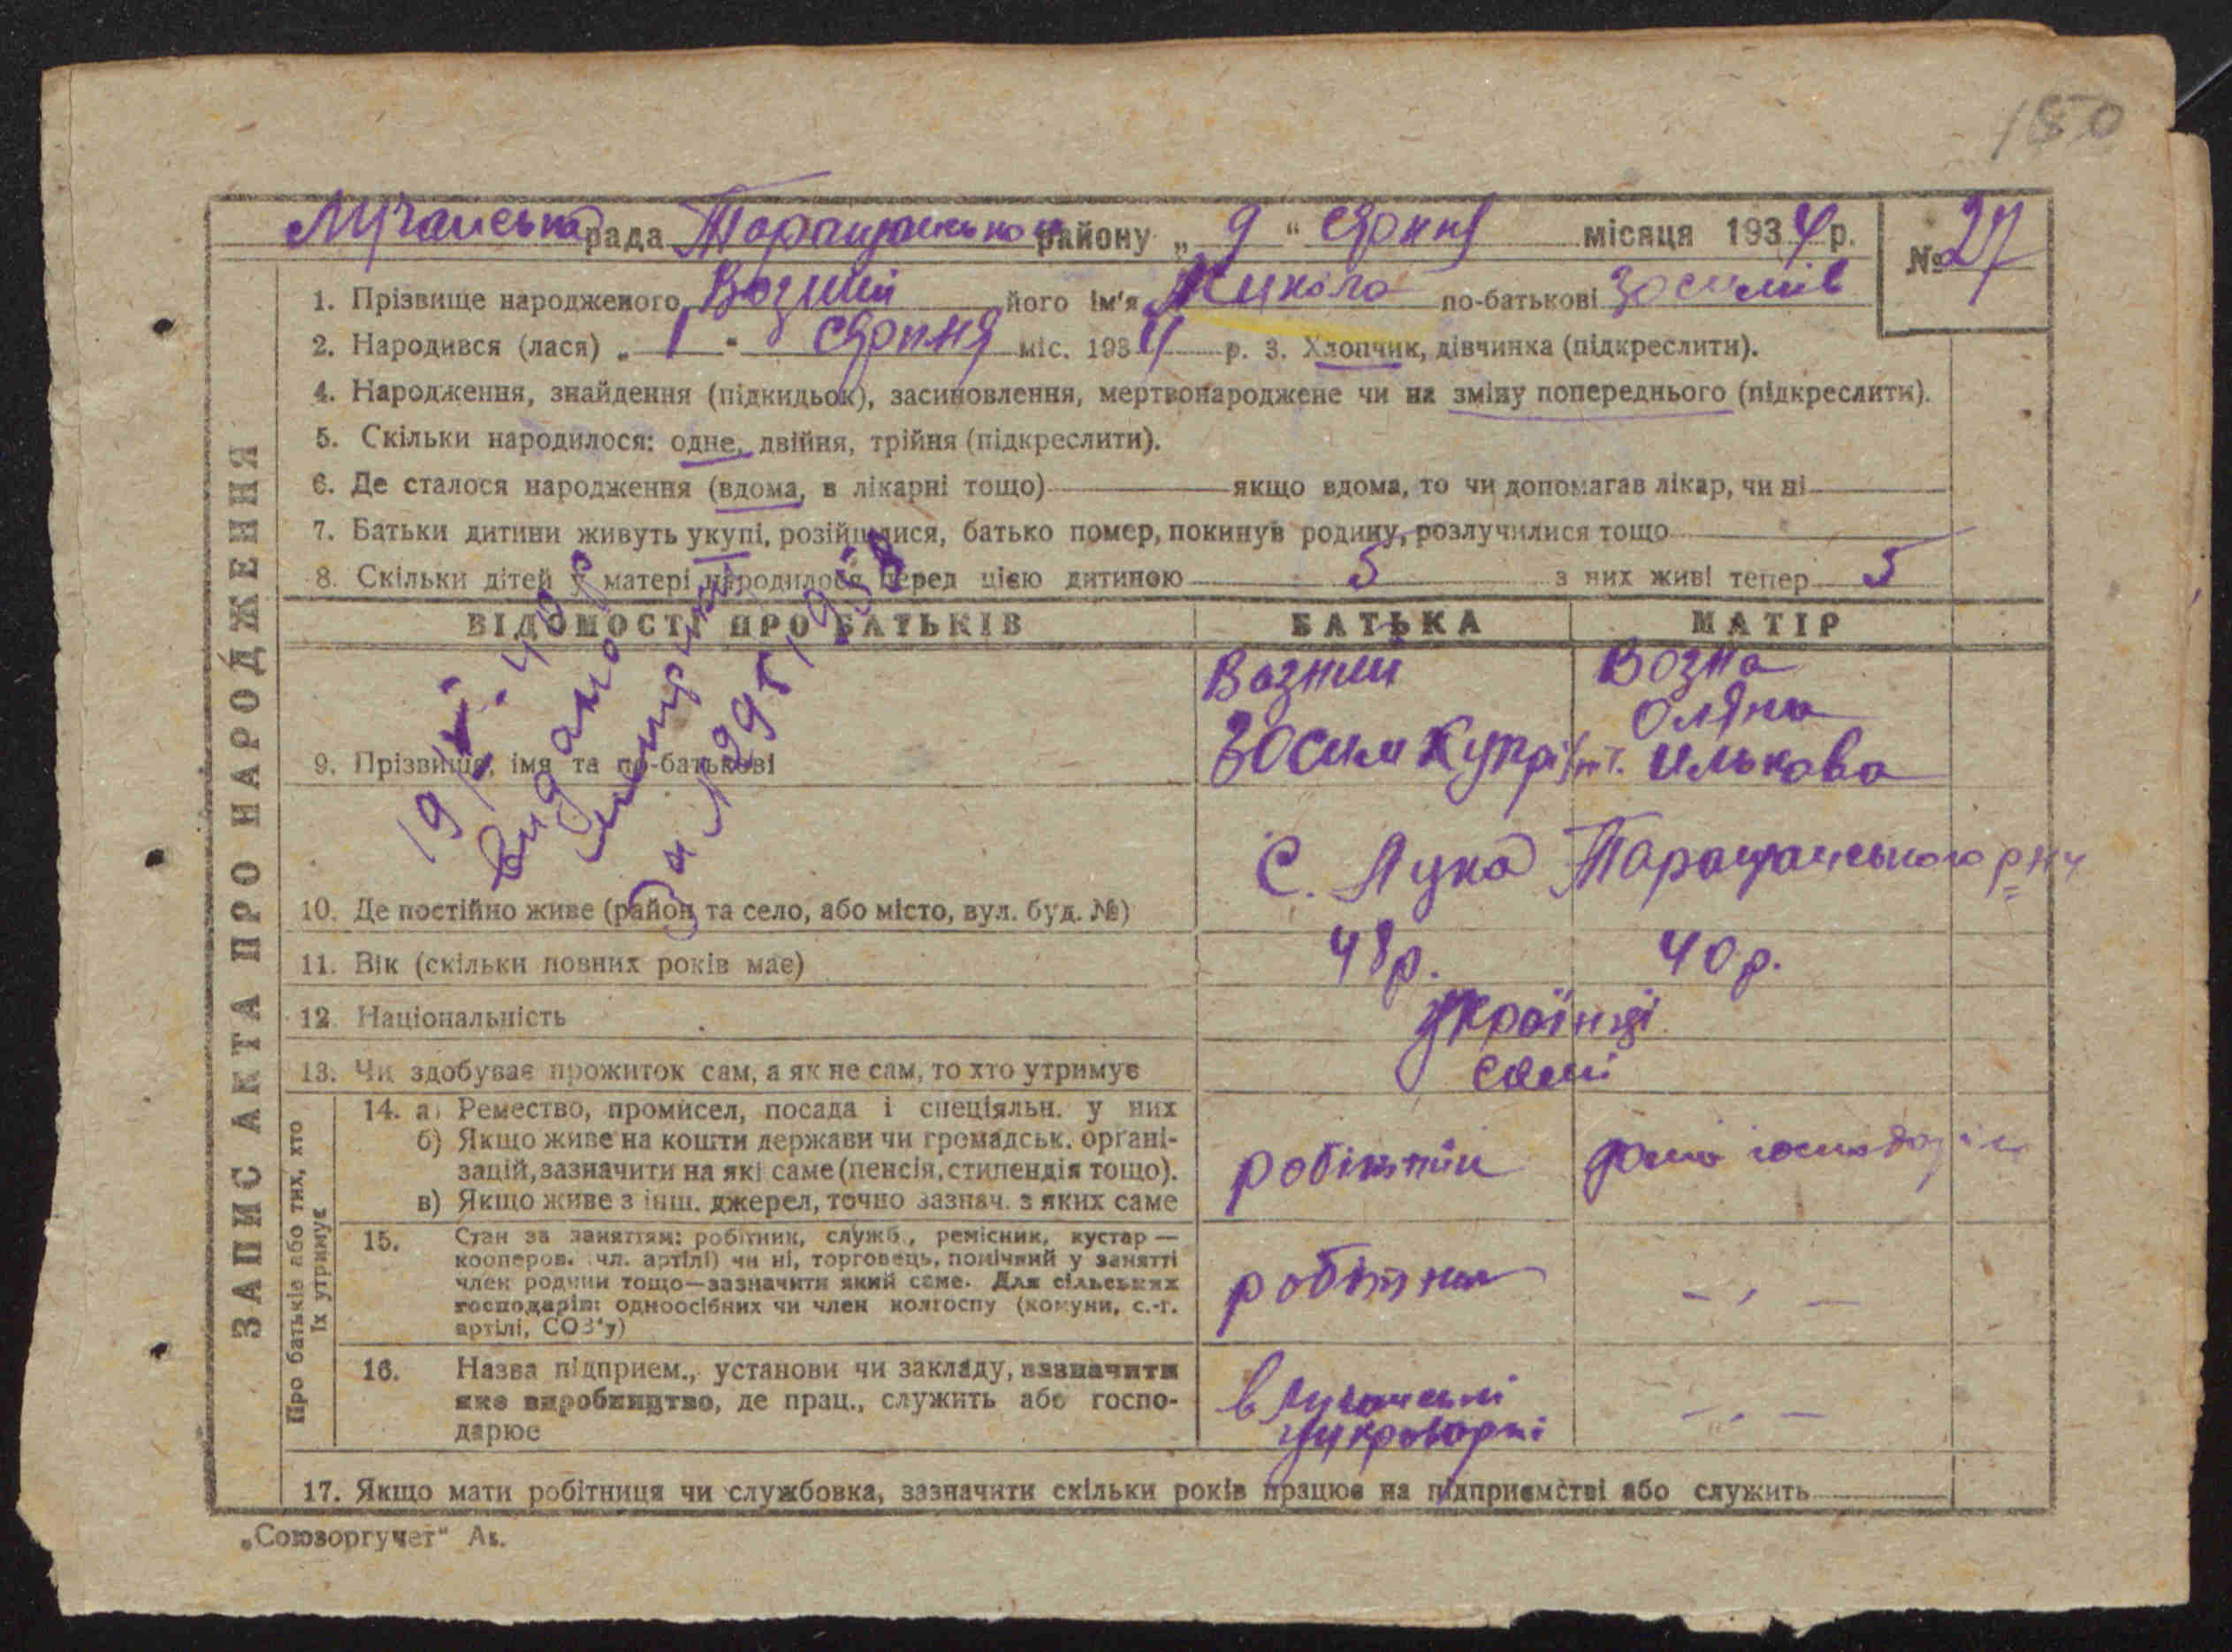 150
Лучанська рада Таращанського району „ 9 " серпня місяця 1934 р. № 27
1. Прізвище народженого Возний його ім'я Микола по-батькові Зосимів
2. Народився (лася) „ 1 " серпня міс. 1934 р. 3. Хлопчик, дівчинка (підкреслити).
4. Народження, знайдення (підкидьок), засиновлення, мертвонароджене чи на зміну попереднього (підкреслити).
5. Скільки народилося: одне, двійня, трійня (підкреслити).
6. Де сталося народження (вдома, в лікарні тощо) якщо вдома, то чи допомагав лікар, чи ні
7. Батьки дитини живуть укупі, розійшлися, батько помер, покинув родину, розлучилися тощо
8. Скільки дітей у матері народилося перед цією дитиною 5 з них живі тепер 5
ЗАПИС АКТА ПРО НАРОДЖЕННЯ
ВІДОМОСТІ ПРО БАТЬКІВ БАТЬКА МАТІР
Возний Возна
Оляна
9. Прізвище, імя та по-батькові Зосим Купріят. Илькова
Видано
за №
10. Де постійно живе (район та село, або місто, вул. буд. №) С. Лука Таращанського р-ну
11. Вік (скільки повних років має) 48 р. 40 р.
12. Національність українці
13. Чи здобуває прожиток сам, а як не сам, то хто утримує самі
Про батьків або тих, хто
їх утримує
14. а) Ремество, промисел, посада і спеціяльн. у них
б) Якщо живе на кошти держави чи громадськ. органі-
зацій, зазначити на які саме (пенсія, стипендія тощо).
в) Якщо живе з інш. джерел, точно зазнач. з яких саме
робітник
15. Стан за заняттям: робітник, служб., ремісник, кустар —
кооперов. (чл. артілі) чи ні, торговець, помічний у занятті
член родини тощо—зазначити який саме. Для сільських
господарів: одноосібних чи член колгоспу (комуни, с.-г.
артілі, СОЗ'у)
робітник — „ —
16. Назва підприєм., установи чи закладу, взазначити
яке виробництво, де прац., служить або госпо-
дарює
в Лучанські
цукроварні — „ —
17. Якщо мати робітниця чи службовка, зазначити скільки років працює на підприємстві або служить
„Союзоргучет"